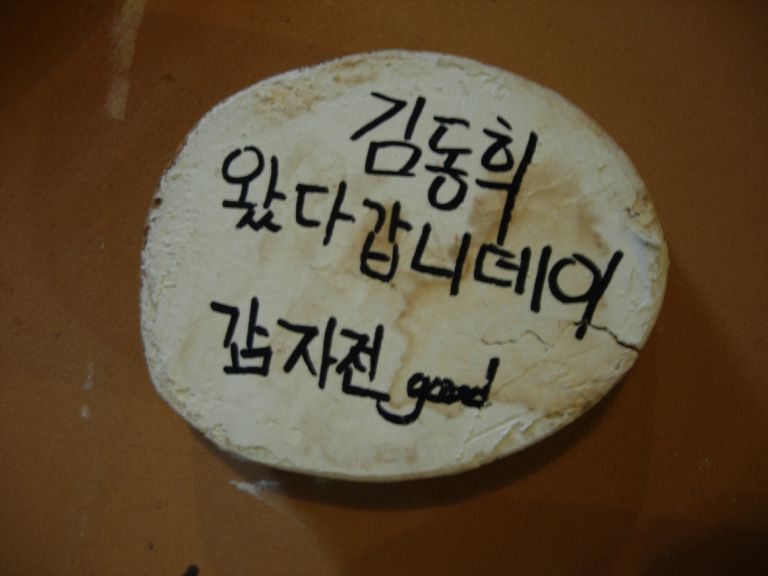 김동희
왔다갑니데이
감자전 good